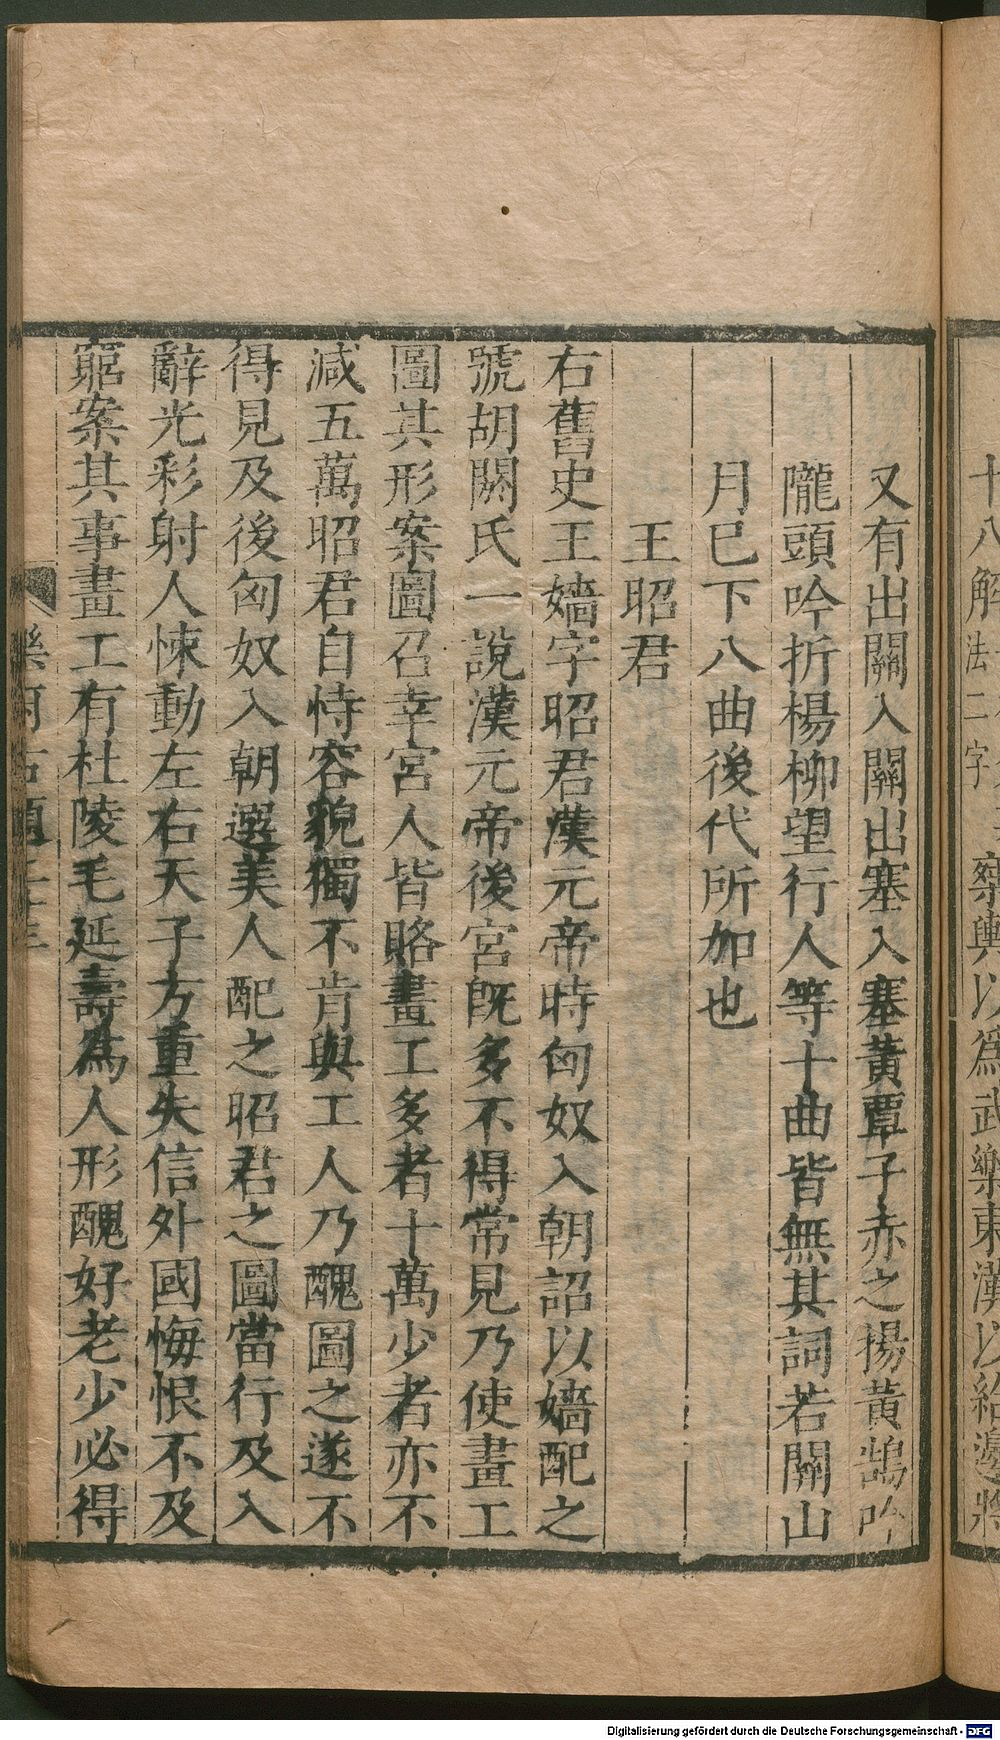 十八解
法二字
樂輿以爲武樂東漢以給邊將
又有出關入關出塞入塞黃覃子赤之揚黃鵠吟
隴頭吟折楊柳望行人等十曲皆無其詞若關山
月已下八曲後代所加也
王昭君
右舊史王嬙字昭君漢元帝時匈奴入朝詔以嬙配之
號胡閼氏一說漢元帝後宮旣多不得常見乃使畫工
圖其形案圖召幸宮人皆賂畫工多者十萬少者亦不
減五萬昭君自恃容貌獨不肯與工人乃醜圖之遂不
得見及後匈奴入朝選美人配之昭君之圖當行及入
辭光彩射人悚動左右天子方重失信外國悔恨不及
窮案其事畫工有杜陵毛延壽爲人形醜好老少必得
Digitalisierung gefördert durch die Deutsche Forschungsgemeinschaft - DFG